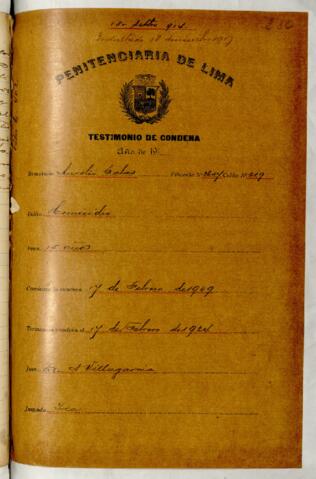 PENITENCIARIA DE LIMA
TESTIMONIO DE CONDENA
Año de 19
Rematado Aurelio Salas Filiación N.º Celda N.º 219
Delito Homicidio
Pena 15 años
Comienza la condena 17 de Febrero de 1909
Termina la condena el 17 de Febrero de 1924
Juez Dr. A Villagarcia
Juzgado Ica